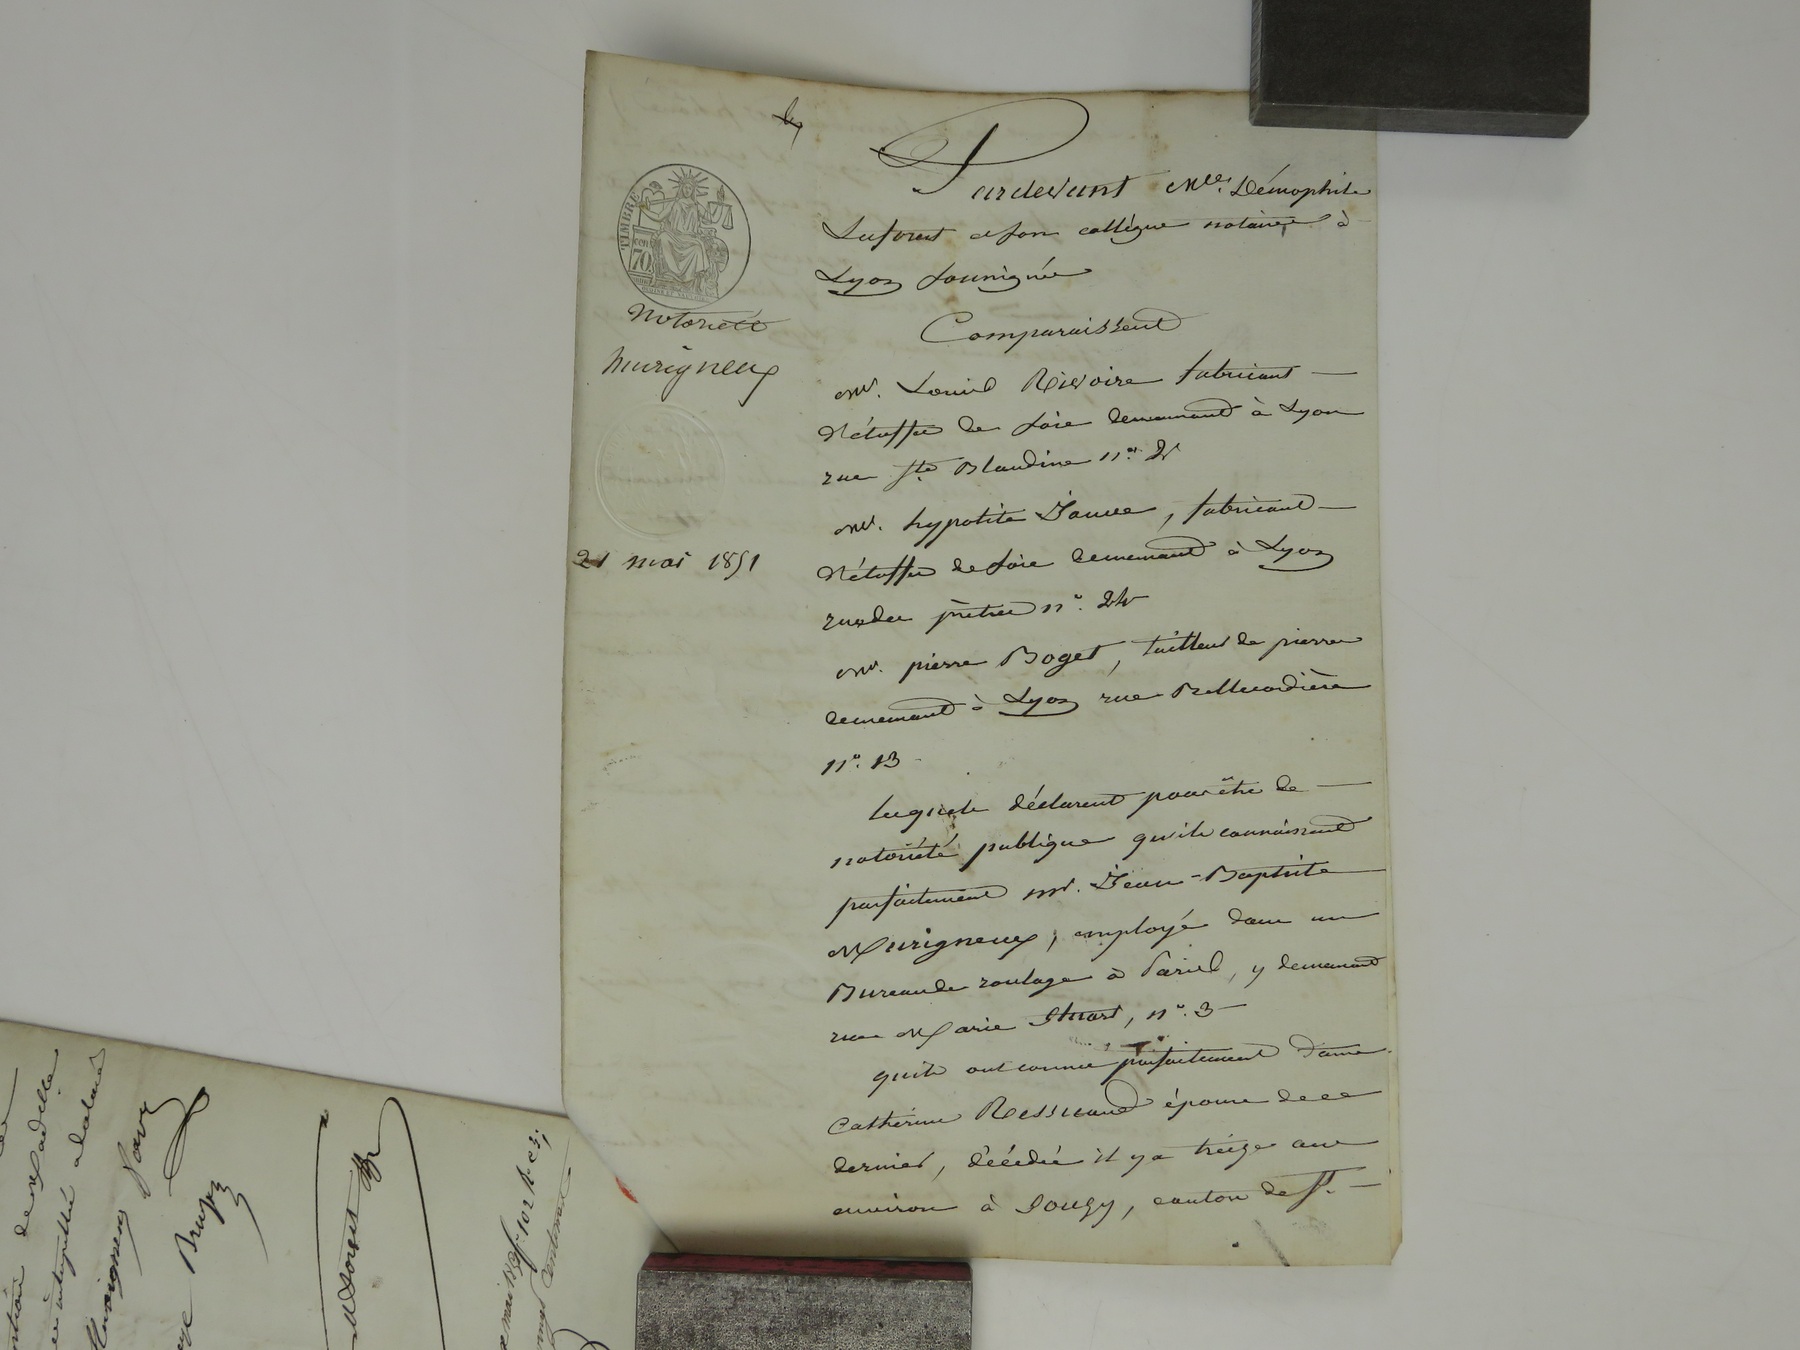 Pardevant Mee. Démophile
Laforest et son collègue notaires à
Lyon soussignés
Comparaissent
Mr. Louis Rivoire fabricant
d'étoffes de soie demeurant à Lyon
rue Ste Blandine no. 2
Mr. hypolite Jance, fabricant
d'étoffes de soie demeurant à Lyon
rue des prêtres no. 24
Mr. pierre Boget, tailleur de pierre
demeurant à Lyon rue Bellecordière
no. 13
lesquels déclarent pour être de
notoriété publique qu'ils connaissent
parfaitement mr. Jean-Baptiste
Murigneux, employé dans un
Bureau de roulage à Paris, y demeurant
rue Marie Stuart, no. 3
qu'ils ont connu parfaitement dame
Catherine Ressicaud épouse de ce
dernier, décédée il y a treize ans
environ à Souzy, canton de St.
TIMBRE
70
notoriété
Murigneux
21 mai 1851
interpellé a déclaré